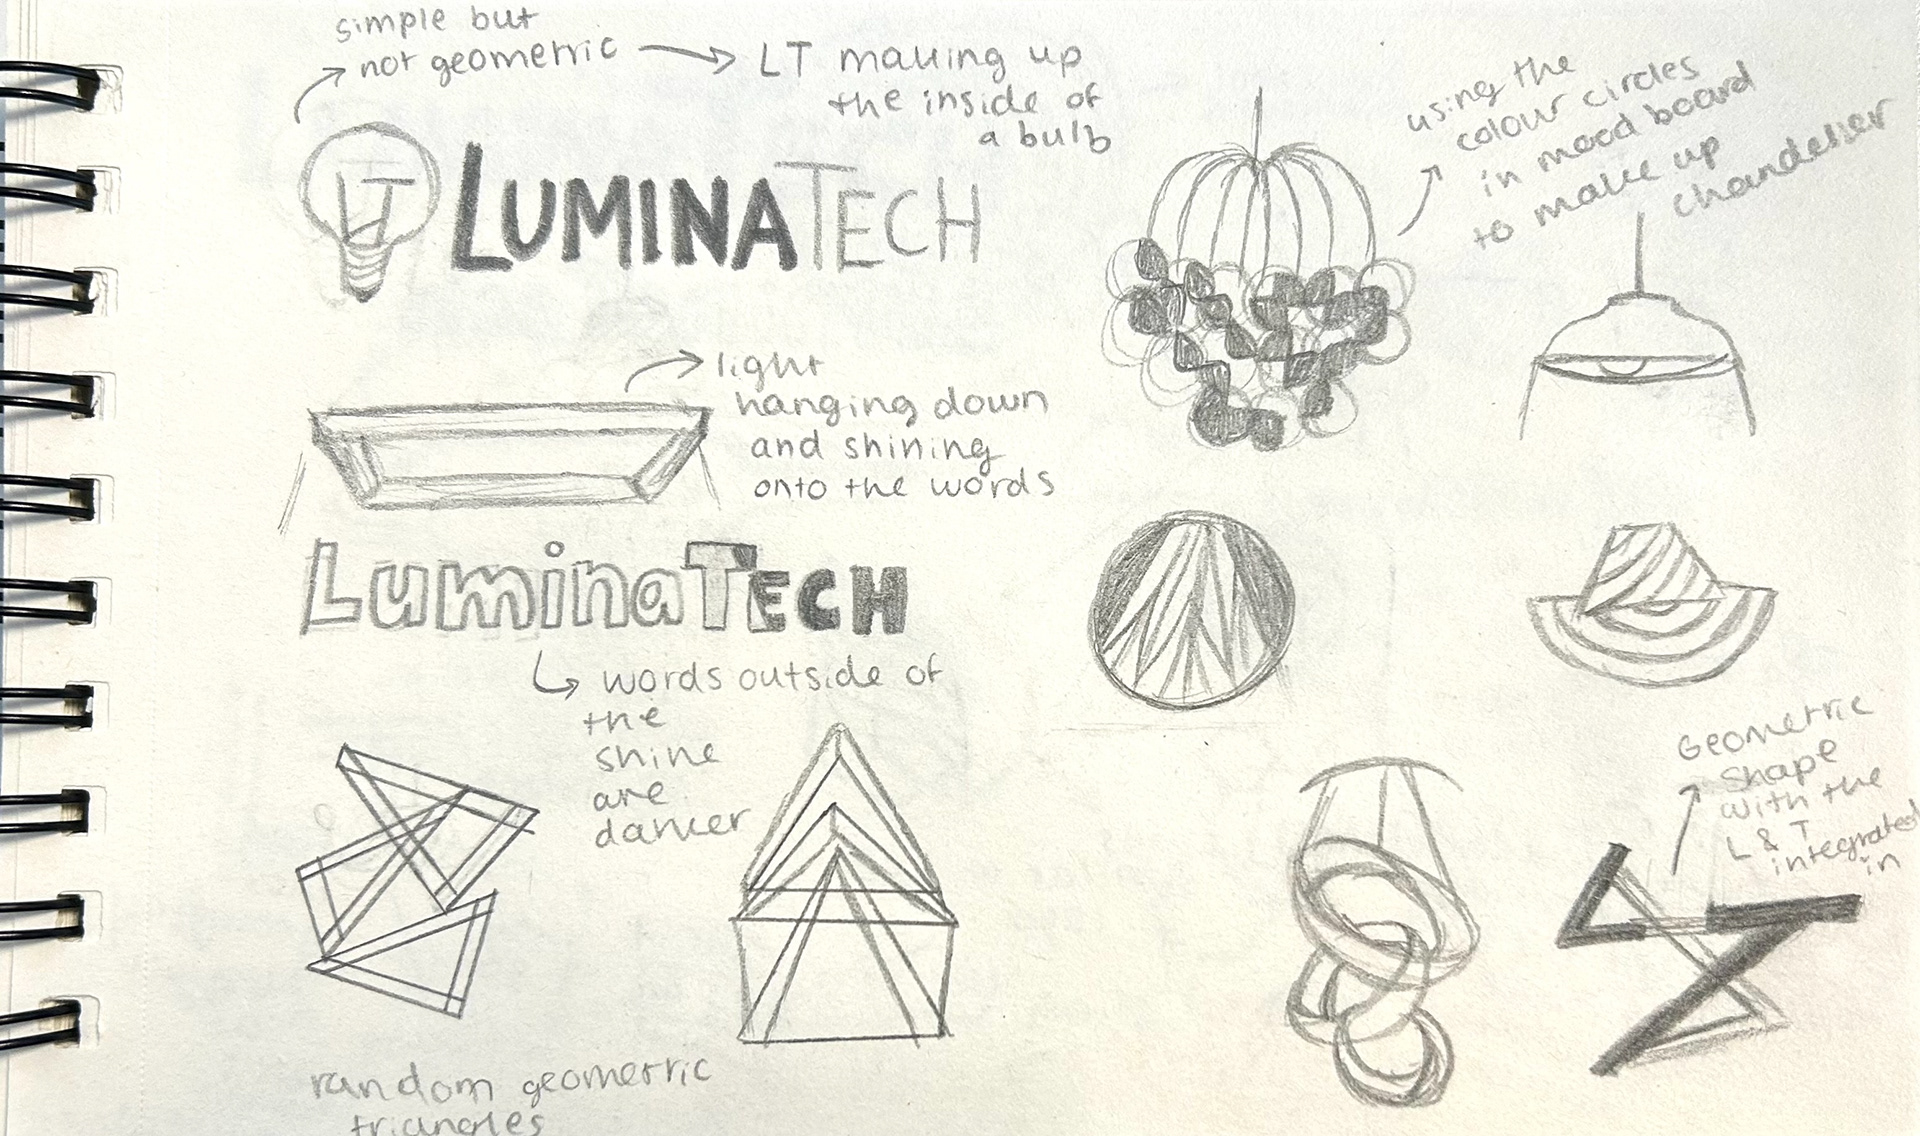 simple but
not geometric
LT making up
the inside of
a bulb
LT
LUMINATECH
using the
colour circles
in mood board
to make up
chandelier
light
hanging down
and shining
onto the words
LuminaTECH
words outside of
the
shine
are
darker
Geometric
Shape
with the
L & T
integrated
in
random geometric
triangles